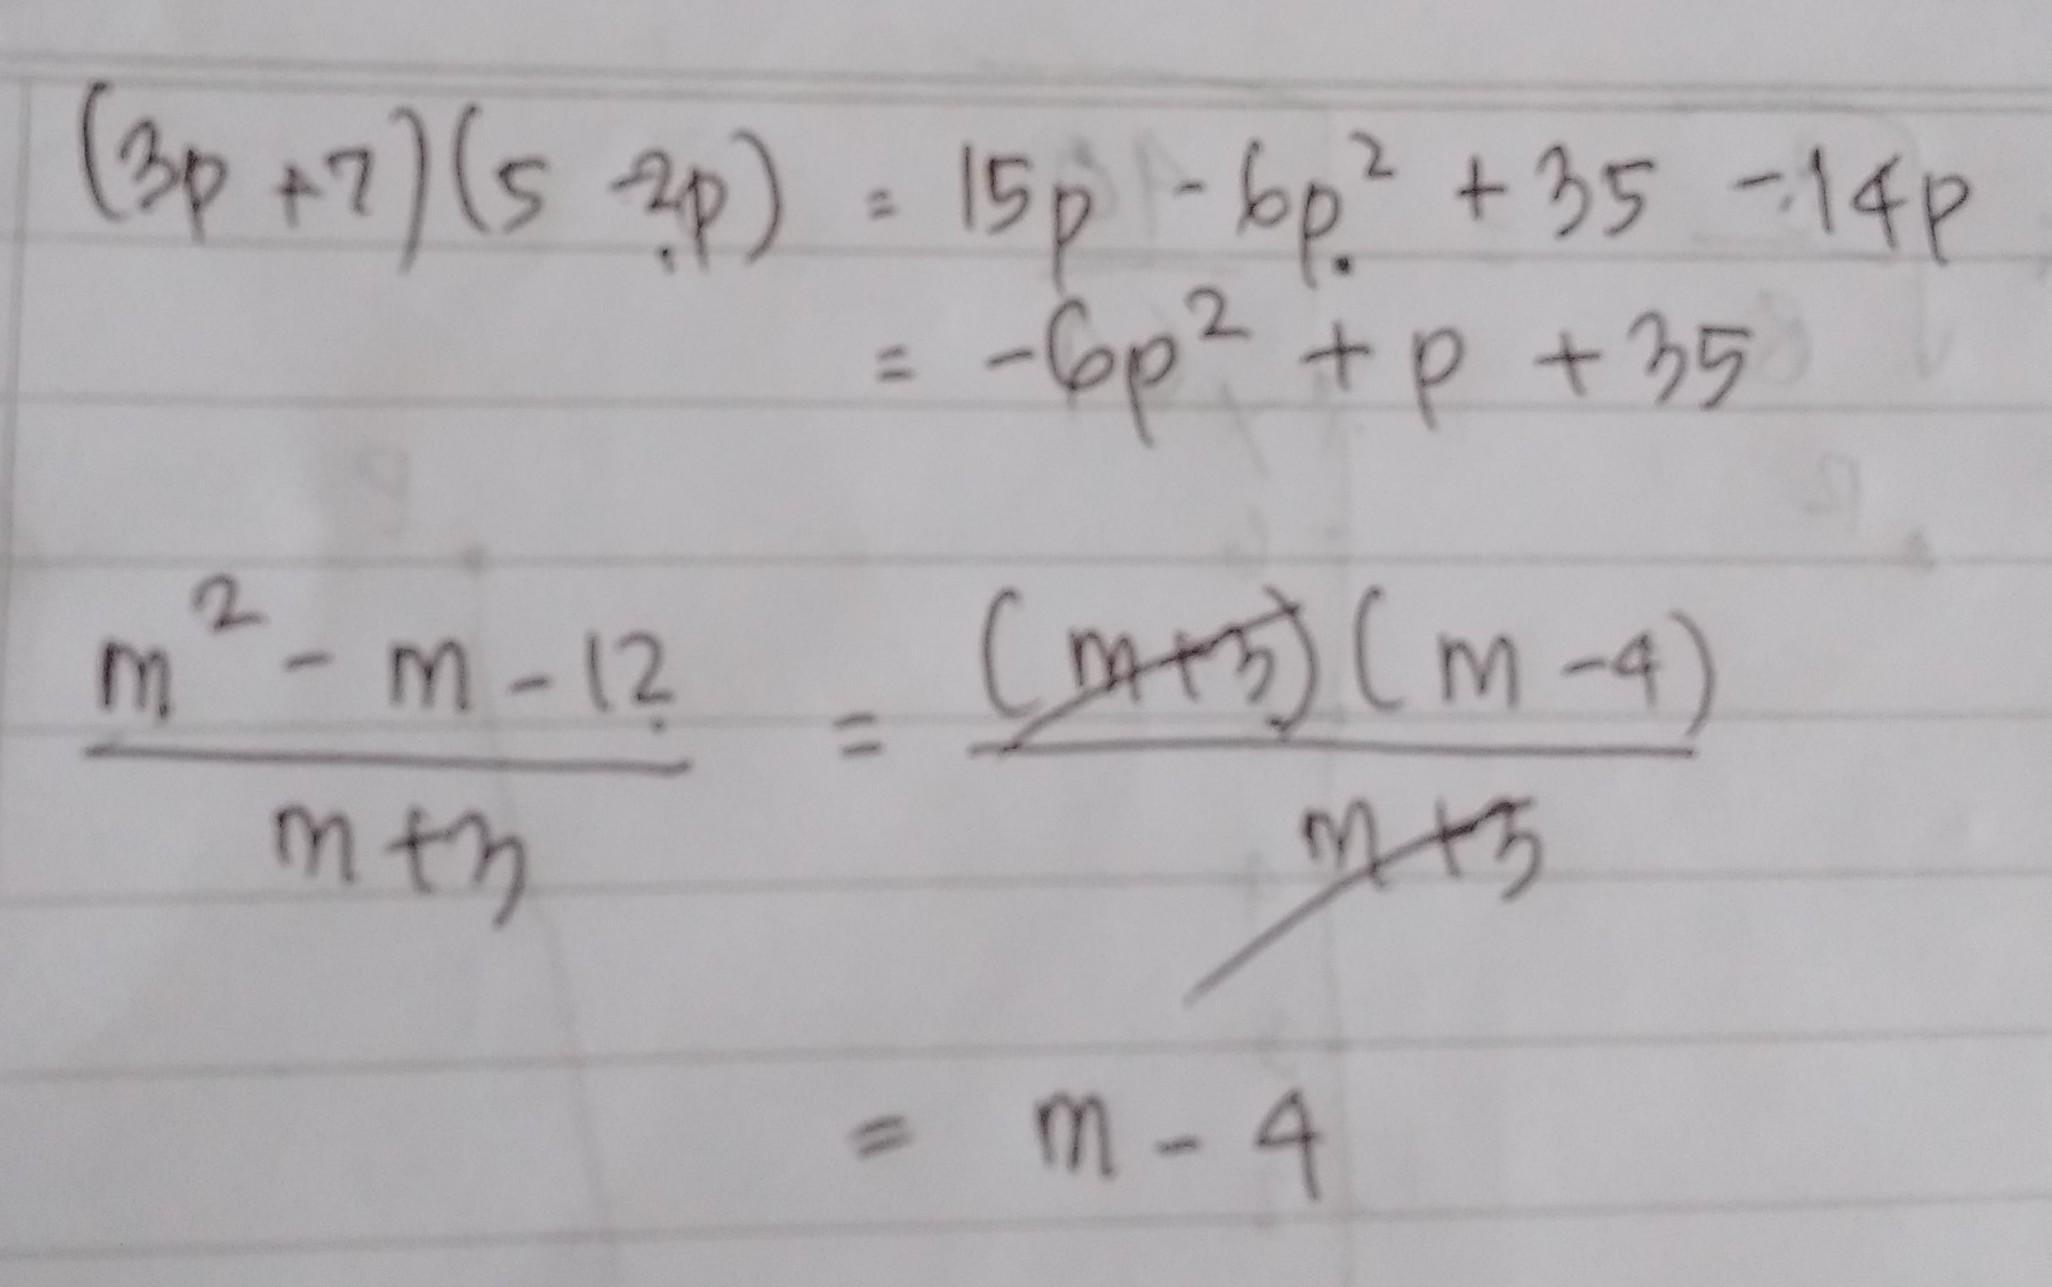 (3p + 7)(5 - 2p) = 15p - 6p² + 35 - 14p
= -6p² + p + 35
m² - m - 12 / m + 3 = (m + 3)(m - 4) / m + 3
= m - 4